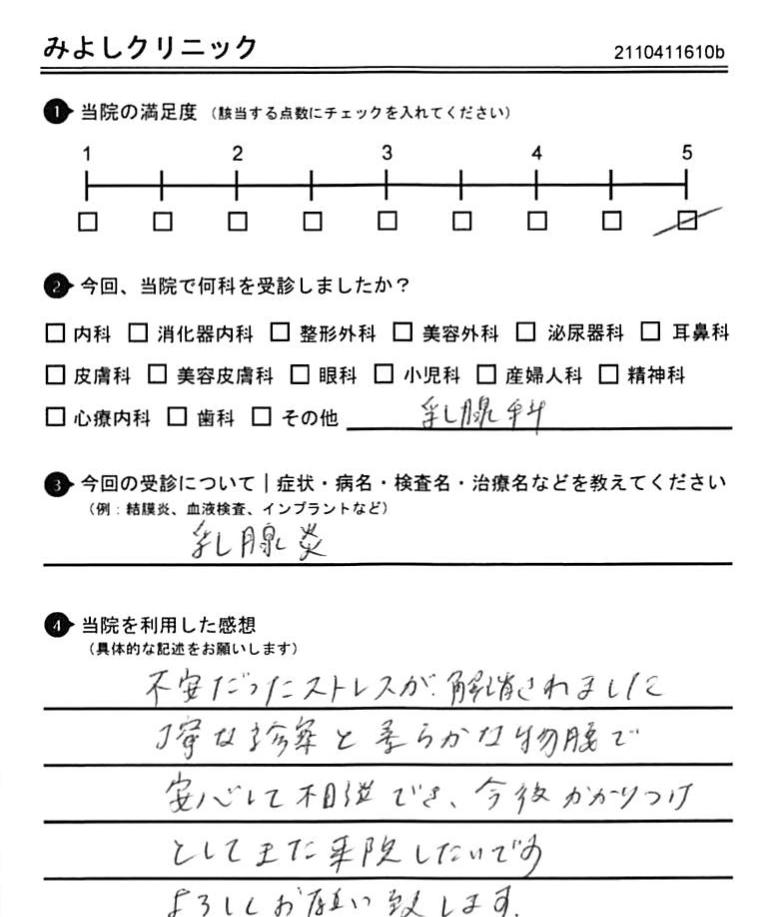 みよしクリニック
2110411610b
1 当院の満足度 (該当する点数にチェックを入れてください)
1 2 3 4 5
2 今回、当院で何科を受診しましたか?
内科 消化器内科 整形外科 美容外科 泌尿器科 耳鼻科
皮膚科 美容皮膚科 眼科 小児科 産婦人科 精神科
心療内科 歯科 その他 乳腺科
3 今回の受診について|症状・病名・検査名・治療名などを教えてください
(例:結膜炎、血液検査、インプラントなど)
乳腺炎
4 当院を利用した感想
(具体的な記述をお願いします)
不安だったストレスが、解消されました
丁寧な診察と柔らかな物腰で
安心して相談でき、今後かかりつけ
としてまた来院したいです
よろしくお願い致します。